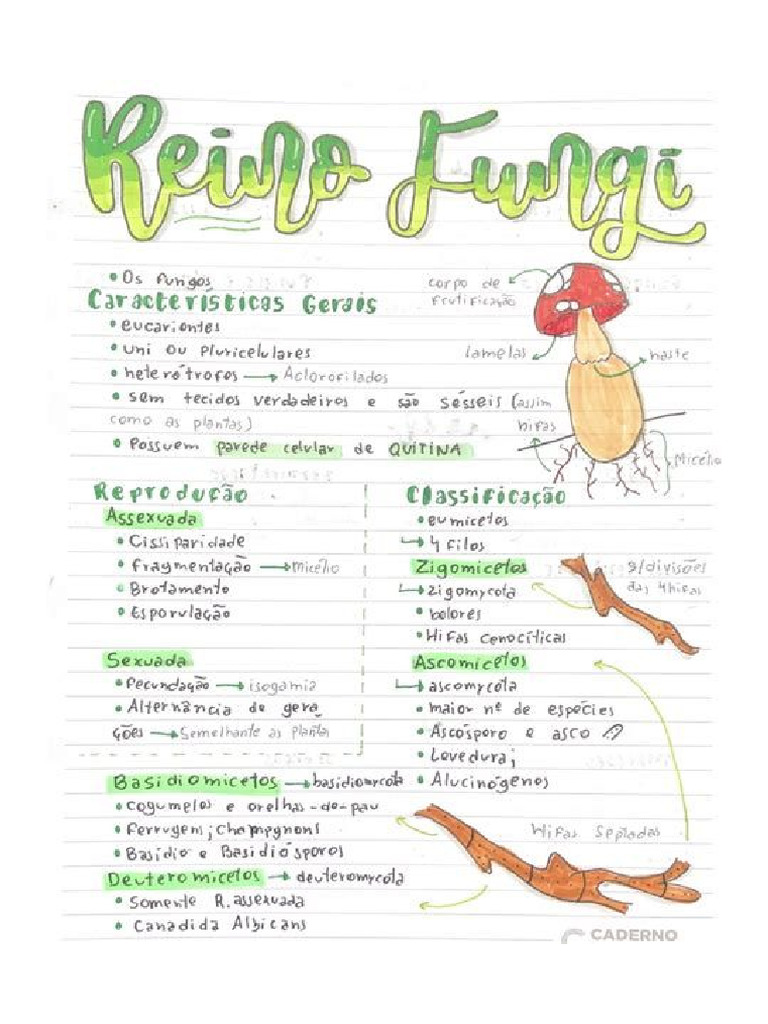 Reino Fungi
• Os fungos
Características Gerais
• eucariontes
• uni ou pluricelulares
• heterótrofos → Aclorofilados
• sem tecidos verdadeiros e são sésseis (assim
como as plantas)
• Possuem parede celular de QUITINA
corpo de
frutificação
lamelas
haste
hifas
Micélio
Reprodução
Assexuada
• Cissiparidade
• Fragmentação → micélio
• Brotamento
• Esporulação
Sexuada
• Fecundação → isogamia
• Alternância de gera
ções → Semelhante as plantas
Classificação
• eumicetos
↳ 4 filos
Zigomicetos
↳ zigomycota
• bolores
• Hifas cenocíticas
s/divisões
das hifas
Ascomicetos
↳ ascomycota
• maior nº de espécies
• Ascósporo e asco
• Levedura;
• Alucinógenos
Basidiomicetos → basidiomycota
• cogumelos e orelhas-de-pau
• Ferrugem; champgnons
• Basídio e Basidiósporos
Deuteromicetos → deuteromycota
• Somente R. assexuada
• Canadida Albicans
Hifas Septadas
CADERNO